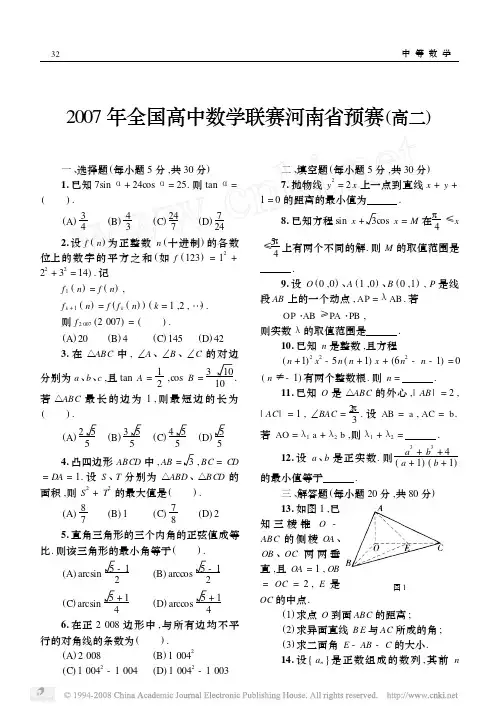 32
中 等 数 学
2007 年全国高中数学联赛河南省预赛(高二)
一、选择题(每小题 5 分 ,共 30 分)
1.已知 7sin α + 24cos α = 25. 则 tan α =
( ).
(A) 3/4 (B) 4/3 (C) 24/7 (D) 7/24
2.设 f ( n) 为正整数 n (十进制) 的各数
位上的数字的平方之和 (如 f (123) = 1² +
2² + 3² = 14) . 记
f₁ ( n) = f ( n) ,
fₖ₊₁ ( n) = f ( fₖ ( n) ) ( k = 1 ,2 , ⋯) .
则 f₂ ₀₀₇ (2 007) = ( ).
(A) 20 (B) 4 (C) 145 (D) 42
3. 在 △ABC 中 , ∠A 、∠B 、∠C 的对边
分别为 a、b、c ,且 tan A = 1/2 ,cos B = 3√10/10 .
若 △ABC 最长的边为 1 ,则最短边的长为
( ).
(A) 2√5/5 (B) 3√5/5 (C) 4√5/5 (D) √5/5
4.凸四边形 ABCD 中 ,AB = √3 , BC = CD
= DA = 1. 设 S 、T 分别为 △ABD 、△BCD 的
面积 ,则 S² + T² 的最大值是( ).
(A) 8/7 (B) 1 (C) 7/8 (D) 2
5.直角三角形的三个内角的正弦值成等
比. 则该三角形的最小角等于( ).
(A) arcsin √5 - 1/2 (B) arccos √5 - 1/2
(C) arcsin √5 + 1/4 (D) arccos √5 + 1/4
6.在正 2 008 边形中 ,与所有边均不平
行的对角线的条数为( ).
(A) 2 008 (B) 1 004²
(C) 1 004² - 1 004 (D) 1 004² - 1 003
二、填空题(每小题 5 分 ,共 30 分)
7.抛物线 y² = 2 x 上一点到直线 x + y +
1 = 0 的距离的最小值为 .
8.已知方程 sin x + √3cos x = M 在 π/4 ≤ x
≤ 5π/4 上有两个不同的解. 则 M 的取值范围是
.
9.设 O (0 ,0) 、A (1 ,0) 、B (0 ,1) , P 是线
段 AB 上的一个动点 , AP = λ AB. 若
OP ·AB ≥ PA ·PB ,
则实数 λ 的取值范围是 .
10.已知 n 是整数 ,且方程
( n + 1)² x² - 5 n ( n + 1) x + (6 n² - n - 1) = 0
( n ≠ - 1) 有两个整数根. 则 n = .
11. 已知 O 是 △ABC 的外心 , | AB | = 2 ,
| AC | = 1 , ∠BAC = 2π/3 . 设 AB = a , AC = b.
若 AO = λ₁ a + λ₂ b ,则 λ₁ + λ₂ = .
12. 设 a、b 是正实数. 则 a³ + b³ + 4/( a + 1) ( b + 1)
的最小值等于 .
三、解答题(每小题 20 分 ,共 80 分)
13.如图 1 ,已
知三棱锥 O -
ABC 的侧棱 OA、
OB、OC 两两垂
直 ,且 OA = 1 , OB
= OC = 2 , E 是
OC 的中点.
A
O
E
C
B
图 1
(1) 求点 O 到面 ABC 的距离 ;
(2) 求异面直线 B E 与 AC 所成的角 ;
(3) 求二面角 E - AB - C 的大小.
14. 设{ aₙ } 是正数组成的数列 ,其前 n
© 1994-2008 China Academic Journal Electronic Publishing House. All rights reserved. http://www.cnki.net